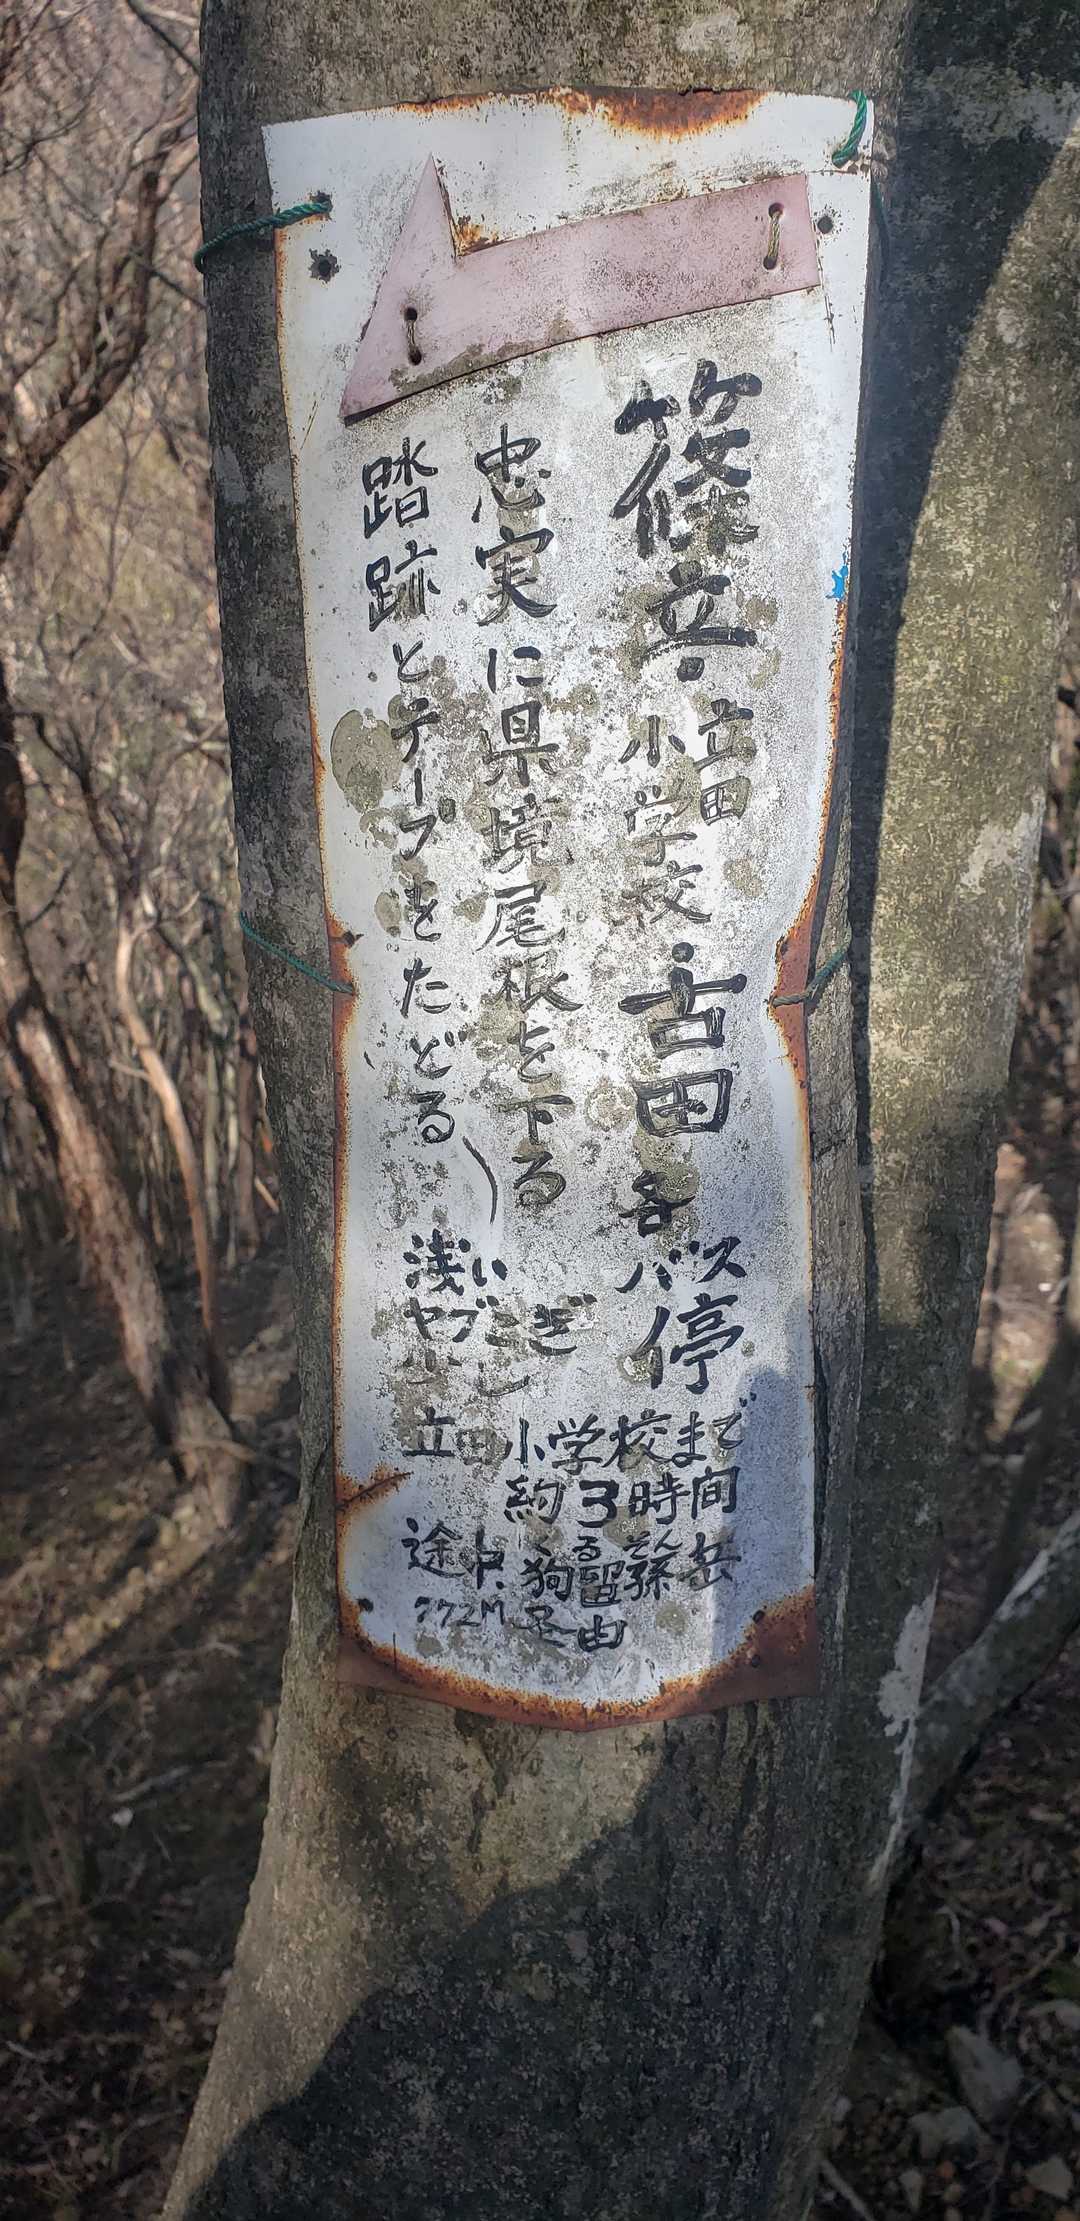 篠立・立田小学校・古田各バス停
忠実に県境尾根を下る
踏跡とテープをたどる
浅い
ヤブこぎ
立田小学校まで
約3時間
途中
狗留孫岳
くるそん
772M
経由